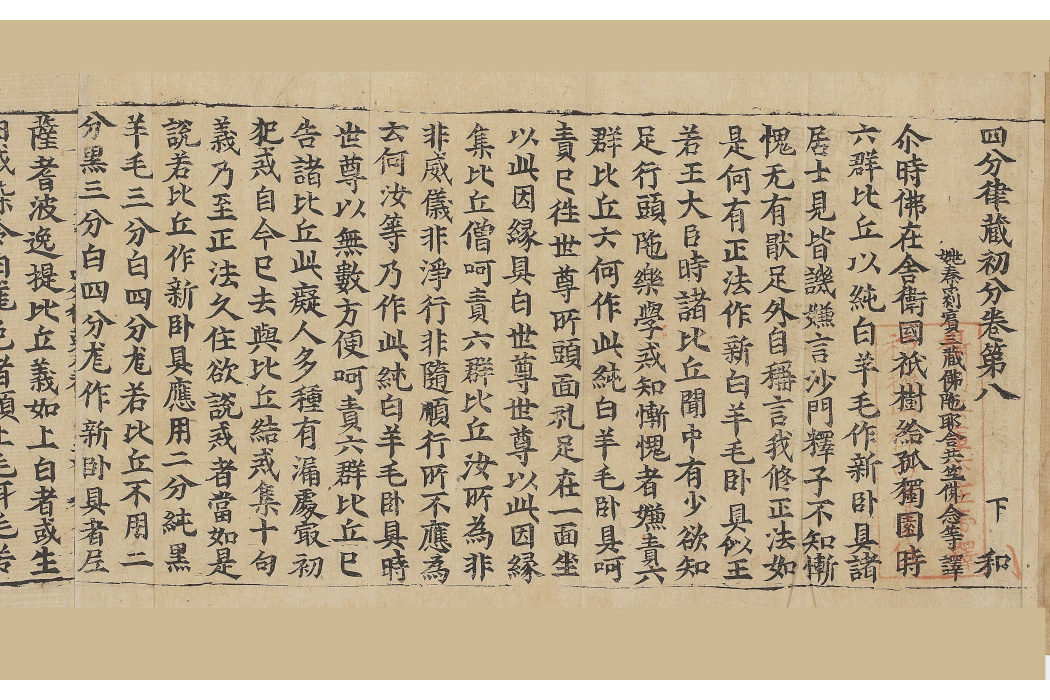 四分律藏初分卷第八　下　和
姚秦罽賓三藏佛陁耶舍共竺佛念等譯
尒時佛在舍衛國祇樹給孤獨園時
六群比丘以純白羊毛作新卧具諸
居士見皆譏嫌言沙門釋子不知慚
愧无有猒足外自稱言我修正法如
是何有正法作新白羊毛卧具似王
若王大臣時諸比丘聞中有少欲知
足行頭陁樂學戒知慚愧者嫌責六
群比丘云何作此純白羊毛卧具呵
責已往世尊所頭面礼足在一面坐
以此因緣具白世尊世尊以此因緣
集比丘僧呵責六群比丘汝所為非
非威儀非淨行非隨順行所不應為
云何汝等乃作此純白羊毛卧具時
世尊以無數方便呵責六群比丘已
告諸比丘此癡人多種有漏處㝡初
犯戒自今已去與比丘結戒集十句
義乃至正法久住欲說戒者當如是
說若比丘作新卧具應用二分純黑
羊毛三分白四分尨若比丘不用二
分黑三分白四分尨作新卧具者尼
薩耆波逸提比丘義如上白者或生